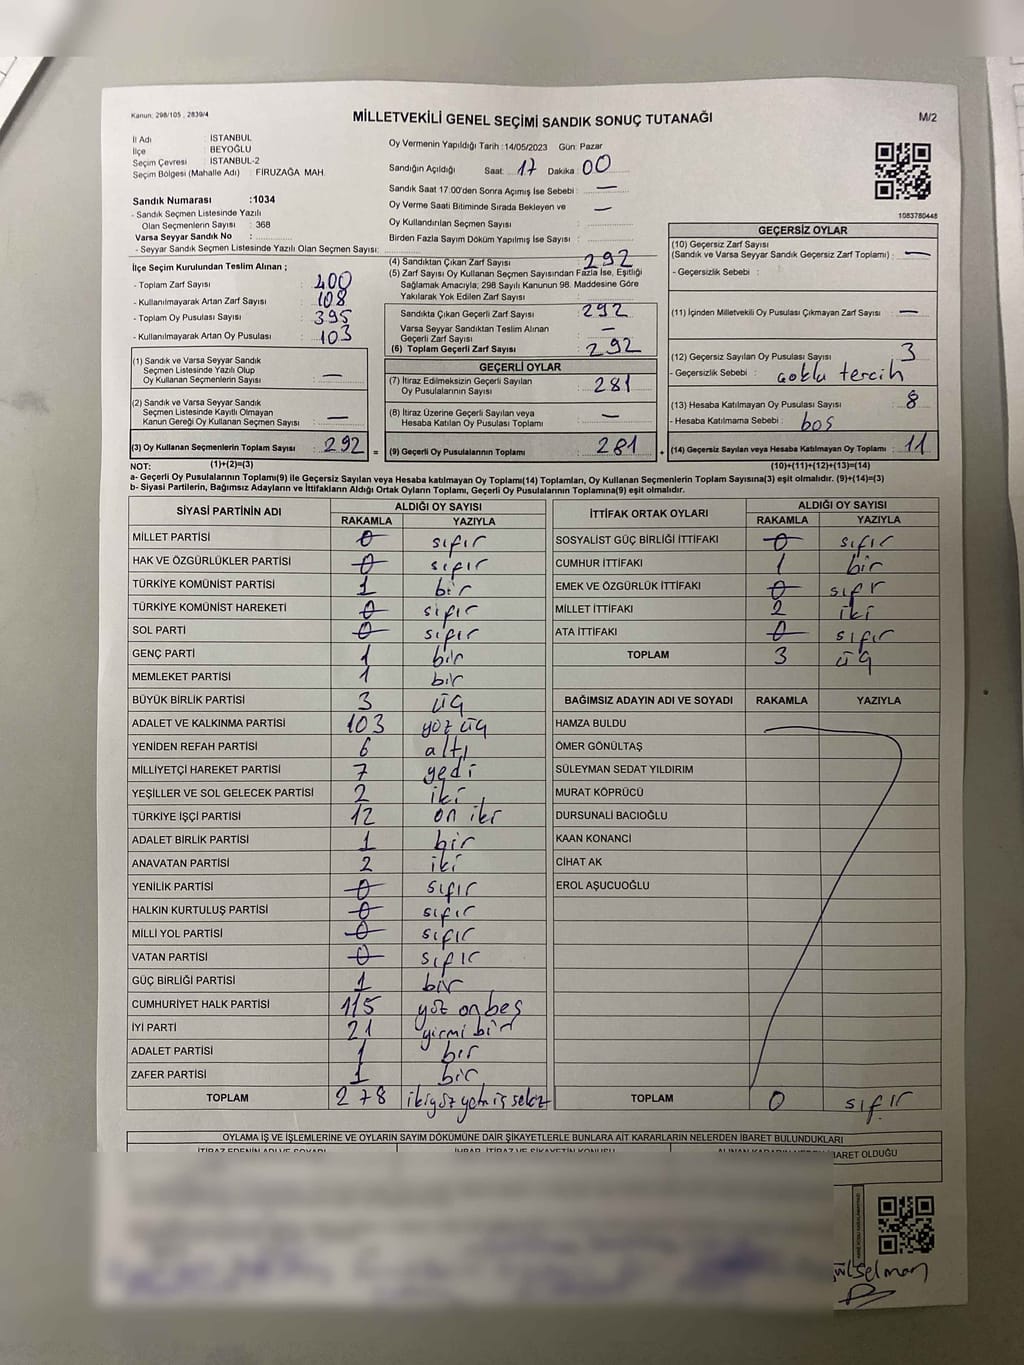 Kanun: 298/105 , 2839/4
MİLLETVEKİLİ GENEL SEÇİMİ SANDIK SONUÇ TUTANAĞI
M/2
İl Adı : İSTANBUL
İlçe : BEYOĞLU
Seçim Çevresi : İSTANBUL-2
Seçim Bölgesi (Mahalle Adı) : FİRUZAĞA MAH.
Oy Vermenin Yapıldığı Tarih :14/05/2023 Gün: Pazar
Sandığın Açıldığı Saat: 17 Dakika 00
Sandık Saat 17:00'den Sonra Açımış İse Sebebi : —
Oy Verme Saati Bitiminde Sırada Bekleyen ve —
Oy Kullandırılan Seçmen Sayısı :
Birden Fazla Sayım Döküm Yapılmış İse Sayısı :
1083780448
Sandık Numarası :1034
- Sandık Seçmen Listesinde Yazılı
Olan Seçmenlerin Sayısı : 368
Varsa Seyyar Sandık No :
- Seyyar Sandık Seçmen Listesinde Yazılı Olan Seçmen Sayısı:
İlçe Seçim Kurulundan Teslim Alınan ;
- Toplam Zarf Sayısı : 400
- Kullanılmayarak Artan Zarf Sayısı : 108
- Toplam Oy Pusulası Sayısı : 395
- Kullanılmayarak Artan Oy Pusulası : 103
(1) Sandık ve Varsa Seyyar Sandık
Seçmen Listesinde Yazılı Olup
Oy Kullanan Seçmenlerin Sayısı : —
(2) Sandık ve Varsa Seyyar Sandık
Seçmen Listesinde Kayıtlı Olmayan
Kanun Gereği Oy Kullanan Seçmen Sayısı : —
(3) Oy Kullanan Seçmenlerin Toplam Sayısı : 292 =
(1)+(2)=(3)
(4) Sandıktan Çıkan Zarf Sayısı : 292
(5) Zarf Sayısı Oy Kullanan Seçmen Sayısından Fazla İse, Eşitliği
Sağlamak Amacıyla; 298 Sayılı Kanunun 98. Maddesine Göre
Yakılarak Yok Edilen Zarf Sayısı :
Sandıkta Çıkan Geçerli Zarf Sayısı : 292
Varsa Seyyar Sandıktan Teslim Alınan
Geçerli Zarf Sayısı : —
(6) Toplam Geçerli Zarf Sayısı : 292
GEÇERLİ OYLAR
(7) İtiraz Edilmeksizin Geçerli Sayılan
Oy Pusulalarının Sayısı : 281
(8) İtiraz Üzerine Geçerli Sayılan veya
Hesaba Katılan Oy Pusulası Toplamı : —
(9) Geçerli Oy Pusulalarının Toplamı : 281 +
GEÇERSİZ OYLAR
(10) Geçersiz Zarf Sayısı
(Sandık ve Varsa Seyyar Sandık Geçersiz Zarf Toplamı) : —
- Geçersizlik Sebebi :
(11) İçinden Milletvekili Oy Pusulası Çıkmayan Zarf Sayısı : —
(12) Geçersiz Sayılan Oy Pusulası Sayısı : 3
- Geçersizlik Sebebi : çoklu tercih
(13) Hesaba Katılmayan Oy Pusulası Sayısı : 8
- Hesaba Katılmama Sebebi : boş
(14) Geçersiz Sayılan veya Hesaba Katılmayan Oy Toplamı : 11
(10)+(11)+(12)+(13)=(14)
NOT:
a- Geçerli Oy Pusulalarının Toplamı(9) ile Geçersiz Sayılan veya Hesaba katılmayan Oy Toplamı(14) Toplamları, Oy Kullanan Seçmenlerin Toplam Sayısına(3) eşit olmalıdır. (9)+(14)=(3)
b- Siyasi Partilerin, Bağımsız Adayların ve İttifakların Aldığı Ortak Oyların Toplamı, Geçerli Oy Pusulalarının Toplamına(9) eşit olmalıdır.
SİYASİ PARTİNİN ADI ALDIĞI OY SAYISI
RAKAMLA YAZIYLA
MİLLET PARTİSİ 0 sıfır
HAK VE ÖZGÜRLÜKLER PARTİSİ 0 sıfır
TÜRKİYE KOMÜNİST PARTİSİ 1 bir
TÜRKİYE KOMÜNİST HAREKETİ 0 sıfır
SOL PARTİ 0 sıfır
GENÇ PARTİ 1 bir
MEMLEKET PARTİSİ 1 bir
BÜYÜK BİRLİK PARTİSİ 3 üç
ADALET VE KALKINMA PARTİSİ 103 yüz üç
YENİDEN REFAH PARTİSİ 6 altı
MİLLİYETÇİ HAREKET PARTİSİ 7 yedi
YEŞİLLER VE SOL GELECEK PARTİSİ 2 iki
TÜRKİYE İŞÇİ PARTİSİ 12 on iki
ADALET BİRLİK PARTİSİ 1 bir
ANAVATAN PARTİSİ 2 iki
YENİLİK PARTİSİ 0 sıfır
HALKIN KURTULUŞ PARTİSİ 0 sıfır
MİLLİ YOL PARTİSİ 0 sıfır
VATAN PARTİSİ 0 sıfır
GÜÇ BİRLİĞİ PARTİSİ 1 bir
CUMHURİYET HALK PARTİSİ 115 yüz on beş
İYİ PARTİ 21 yirmi bir
ADALET PARTİSİ 1 bir
ZAFER PARTİSİ 1 bir
TOPLAM 278 ikiyüz yetmiş sekiz
İTTİFAK ORTAK OYLARI ALDIĞI OY SAYISI
RAKAMLA YAZIYLA
SOSYALİST GÜÇ BİRLİĞİ İTTİFAKI 0 sıfır
CUMHUR İTTİFAKI 1 bir
EMEK VE ÖZGÜRLÜK İTTİFAKI 0 sıfır
MİLLET İTTİFAKI 2 iki
ATA İTTİFAKI 0 sıfır
TOPLAM 3 üç
BAĞIMSIZ ADAYIN ADI VE SOYADI RAKAMLA YAZIYLA
HAMZA BULDU
ÖMER GÖNÜLTAŞ
SÜLEYMAN SEDAT YILDIRIM
MURAT KÖPRÜCÜ
DURSUNALİ BACIOĞLU
KAAN KONANCİ
CİHAT AK
EROL AŞUCUOĞLU
TOPLAM 0 sıfır
OYLAMA İŞ VE İŞLEMLERİNE VE OYLARIN SAYIM DÖKÜMÜNE DAİR ŞİKAYETLERLE BUNLARA AİT KARARLARIN NELERDEN İBARET BULUNDUKLARI
İTİRAZ EDENİN ADI VE SOYADI İHBAR, İTİRAZ VE ŞİKAYETİN KONUSU OLDUĞU